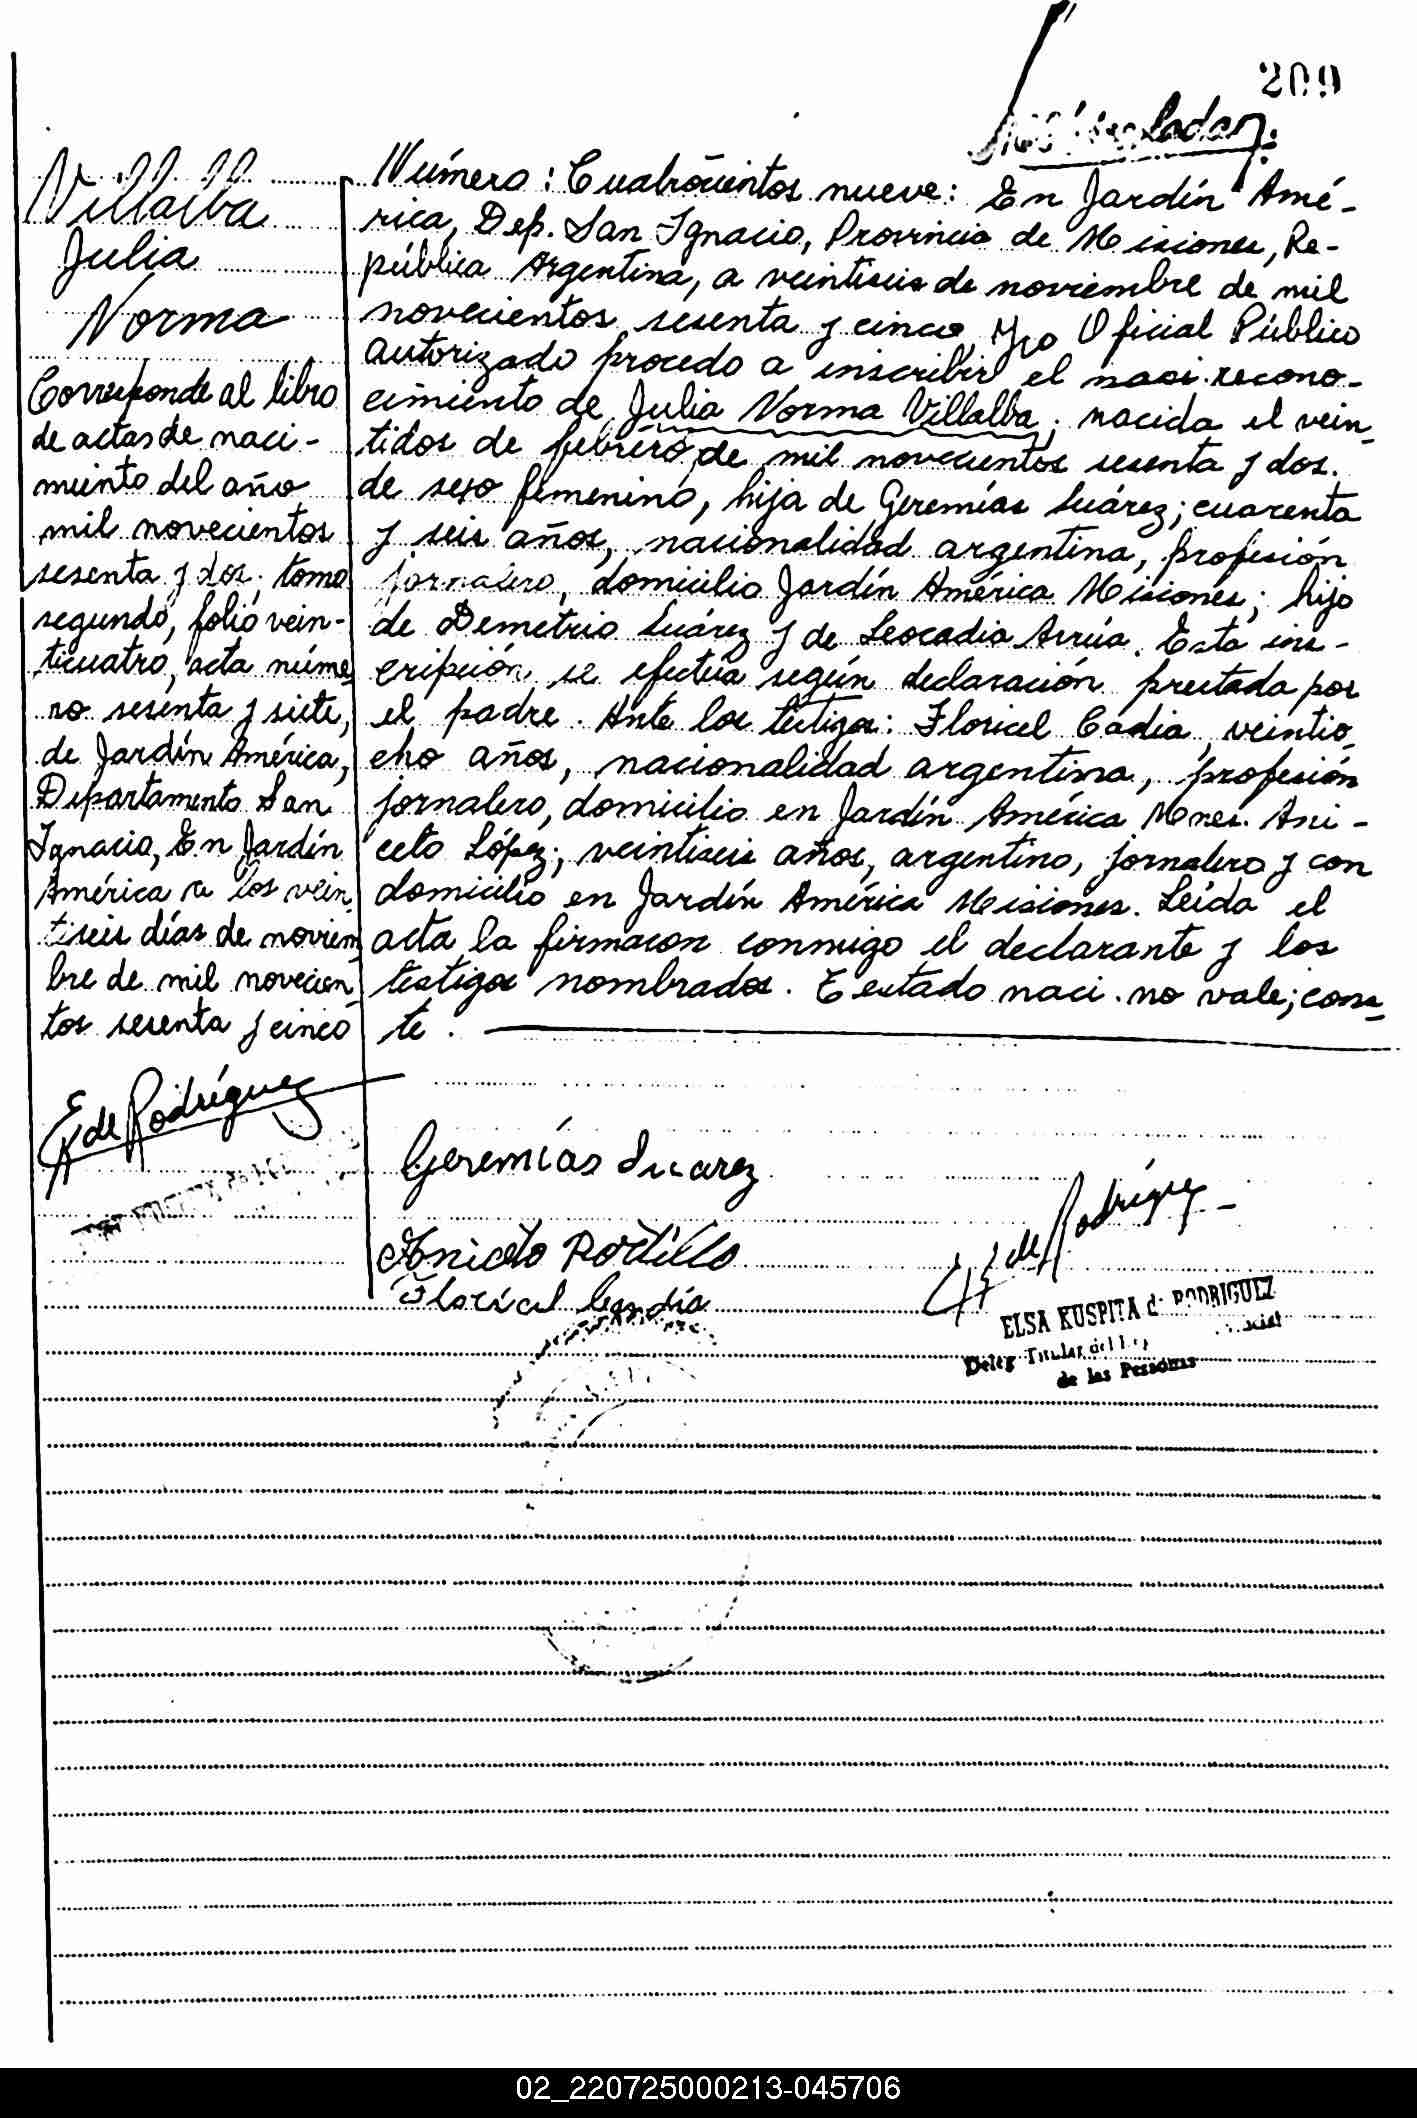 209
Villalba
Julia
Norma
Corresponde al libro
de actas de naci-
miento del año
mil novecientos
sesenta y dos, tomo
segundo, folio vein-
ticuatro, acta núme
ro sesenta y siete,
de Jardín América,
Departamento San
Ignacio, En Jardín
América a los vein
tiseis días de noviem
bre de mil novecien
tos sesenta y cinco
E de Rodríguez
Número: Cuatrocientos nueve: En Jardín Amé-
rica, Dep. San Ignacio, Provincia de Misiones, Re-
pública Argentina, a veintiseis de noviembre de mil
novecientos sesenta y cinco, Yo Oficial Público
autorizado procedo a inscribir el naci. recono-
cimiento de Julia Norma Villalba; nacida el vein_
tidos de febrero de mil novecientos sesenta y dos.
de sexo femenino, hija de Geremías Suárez; cuarenta
y seis años, nacionalidad argentina, profesión
jornalero, domicilio Jardín América Misiones; hijo
de Demetrio Suárez y de Leocadia Arrúa. Esta ins-
cripción se efectúa según declaración prestada por
el padre. Ante los testigos: Floricel Candia, veintio_
cho años, nacionalidad argentina, profesión
jornalero, domicilio en Jardín América Mnes. Ani-
ceto López; veintiseis años, argentino, jornalero y con
domicilio en Jardín América Misiones. Leída el
acta la firmaron conmigo el declarante y los
testigos nombrados. Eestado naci. no vale; cons_
te.
Geremías Suarez
Aniceto Portillo
Floricel Candia
E de Rodríguez
ELSA KUSPITA de RODRIGUEZ
Deleg Titular del
de las Personas
02_220725000213-045706